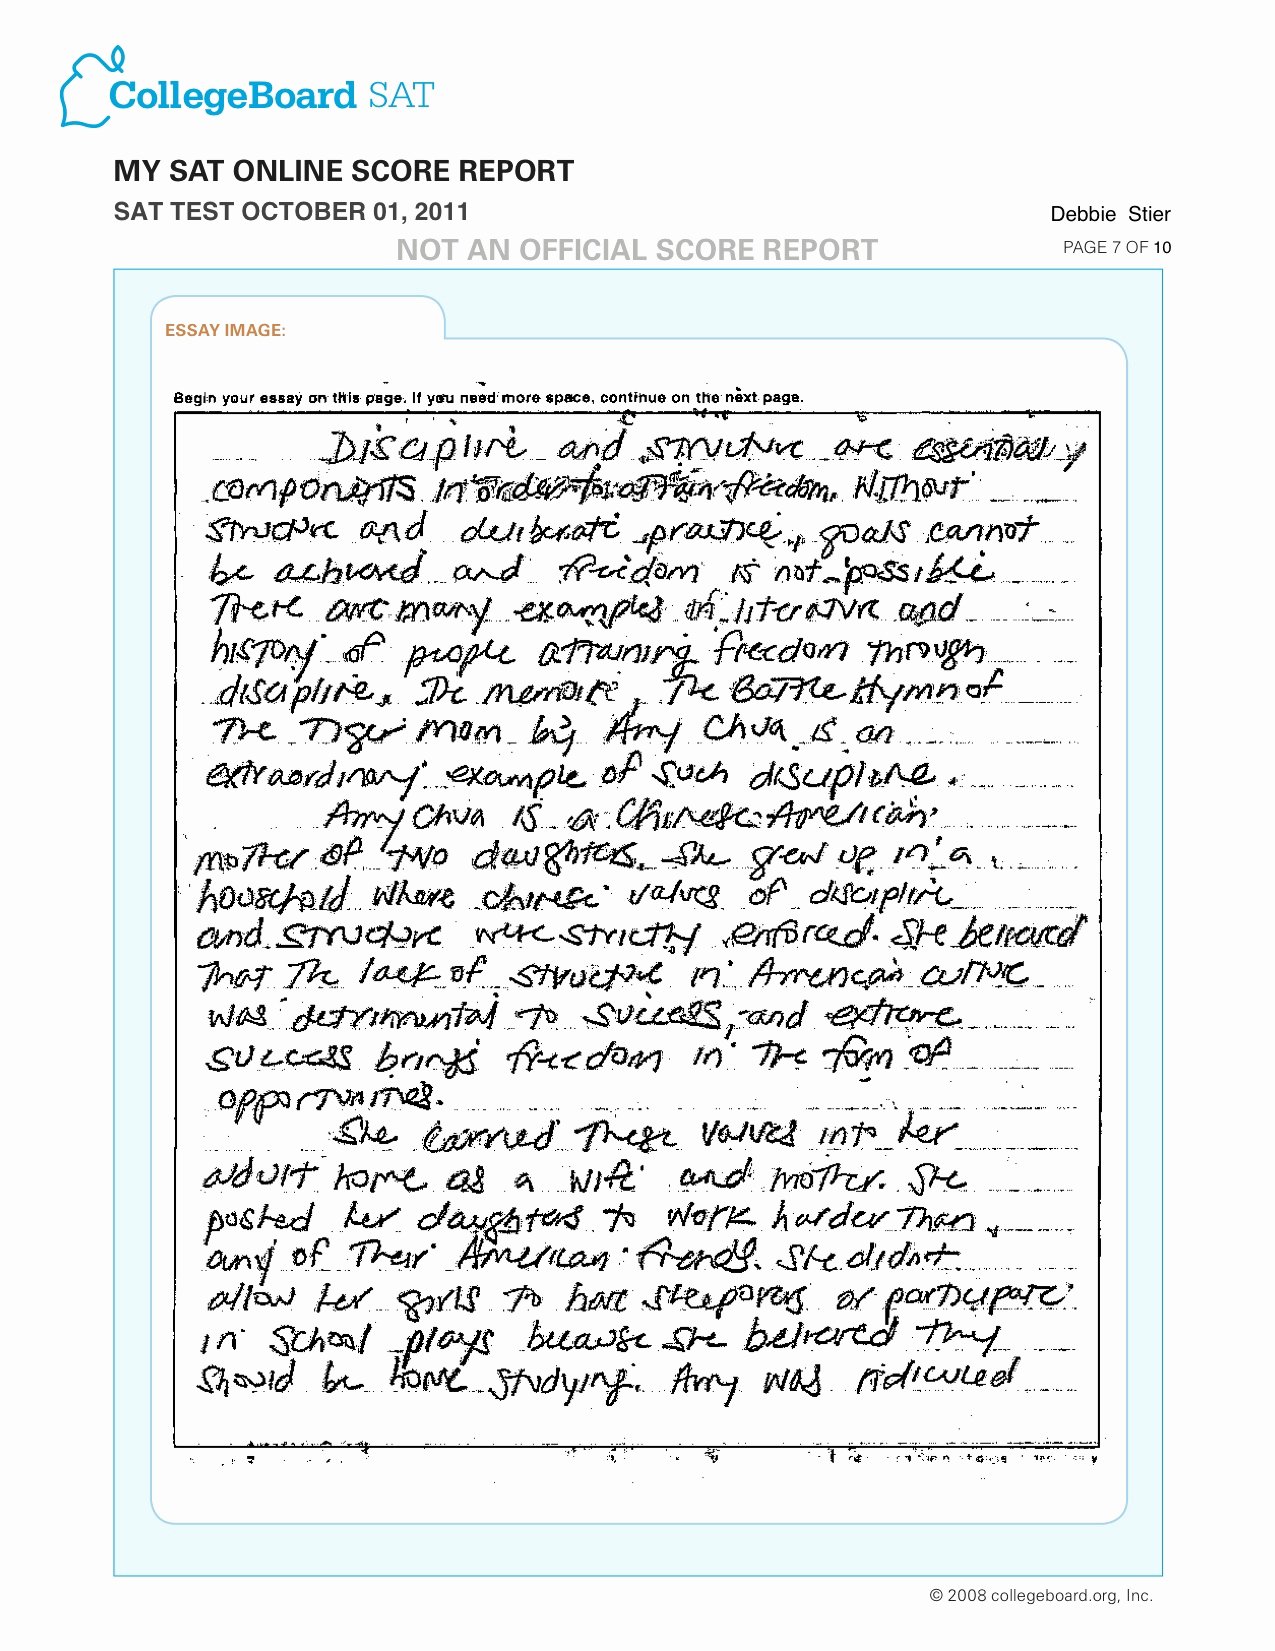 CollegeBoard SAT
MY SAT ONLINE SCORE REPORT
SAT TEST OCTOBER 01, 2011
Debbie Stier
NOT AN OFFICIAL SCORE REPORT
PAGE 7 OF 10
ESSAY IMAGE:
Begin your essay on this page. If you need more space, continue on the next page.
Discipline and structure are essential
components in order to attain freedom. Without
structure and deliberate practice, goals cannot
be achieved and freedom is not possible
There are many examples in literature and
history of people attaining freedom through
discipline. The memoire, The Battle Hymn of
The Tiger Mom by Amy Chua is an
extraordinary example of such discipline.
Amy Chua is a Chinese-American
mother of two daughters. She grew up in a
household where chinese values of discipline
and structure were strictly enforced. She believed
that the lack of structure in American culture
was detrimental to success, and extreme
success brings freedom in the form of
opportunities.
She carried these values into her
adult home as a wife and mother. She
pushed her daughters to work harder than
any of their American friends. She didn't
allow her girls to have sleepovers or participate
in school plays because she believed they
should be home studying. Amy was ridiculed
© 2008 collegeboard.org, Inc.